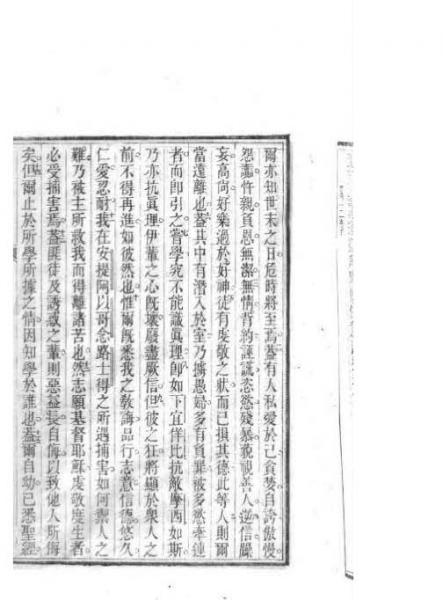 爾亦知世末之日危時將至焉蓋有人私愛於己貪婪自誇傲慢
怨讟忤親負恩無潔無情背約誣謊恣慾殘暴藐視善人逆信躁
妄高尚好樂過於好神徒有虔敬之狀而已損其德此等人則爾
當遠離也蓋其中有潛入於室乃擄愚婦多有負罪被多慾牽連
者而即引之嘗學究不能識真理即如下宜佯比抗敵摩西如斯
乃亦抗真理伊輩之心既壞廢盡厥信但彼之狂將顯於衆人之
前不得再進如彼然也惟爾既悉我之教誨品行志意信德悠久
仁愛忍耐我在安提阿以哥念路士得之所遇捕害如何禦人之
難乃被主所救我而得離諸苦也然志願基督耶穌虔敬度生者
必受捕害焉蓋匪徒及誘惑之輩則惡益長自侮以致他人所侮
矣但爾止於所學所據之情因知學於誰也蓋爾自幼已悉聖經